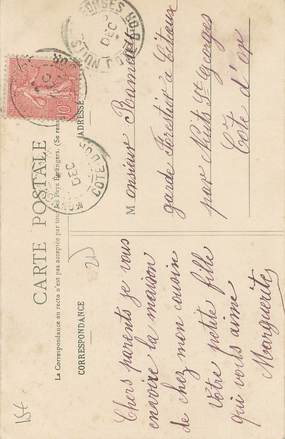 CARTE POSTALE
La Correspondance au recto n'est pas acceptée par tous les Pays Étrangers. (Se rens
CORRESPONDANCE
ADRESSE
Chers parents je vous
envoire la maison
de chez mon cousin
Votre petite fille
qui vous aime
Marguerite
Monsieur
garde Forestier à Citeaux
par Nuits St Georges
Côte d'or
DEC
COTE D'OR
10